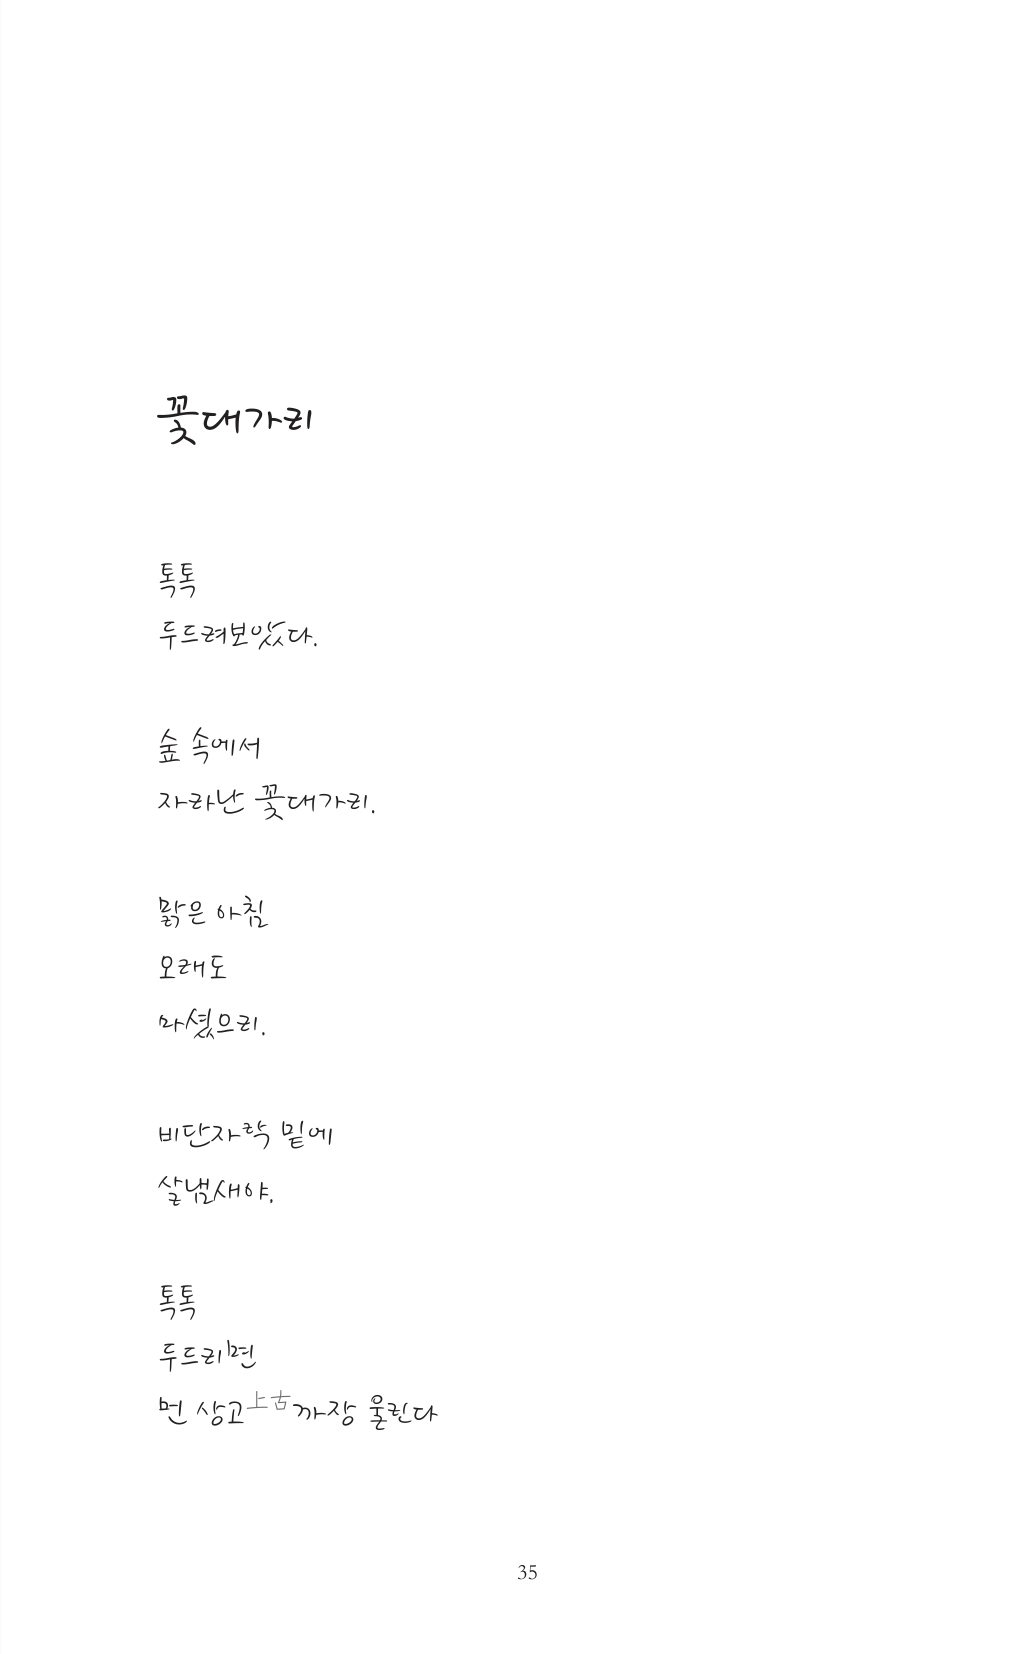 꽃대가리
톡톡
두드려보았다.
숲 속에서
자라난 꽃대가리.
맑은 아침
오래도
마셨으리.
비단자락 밑에
살냄새야.
톡톡
두드리면
먼 상고上古까장 울린다
35